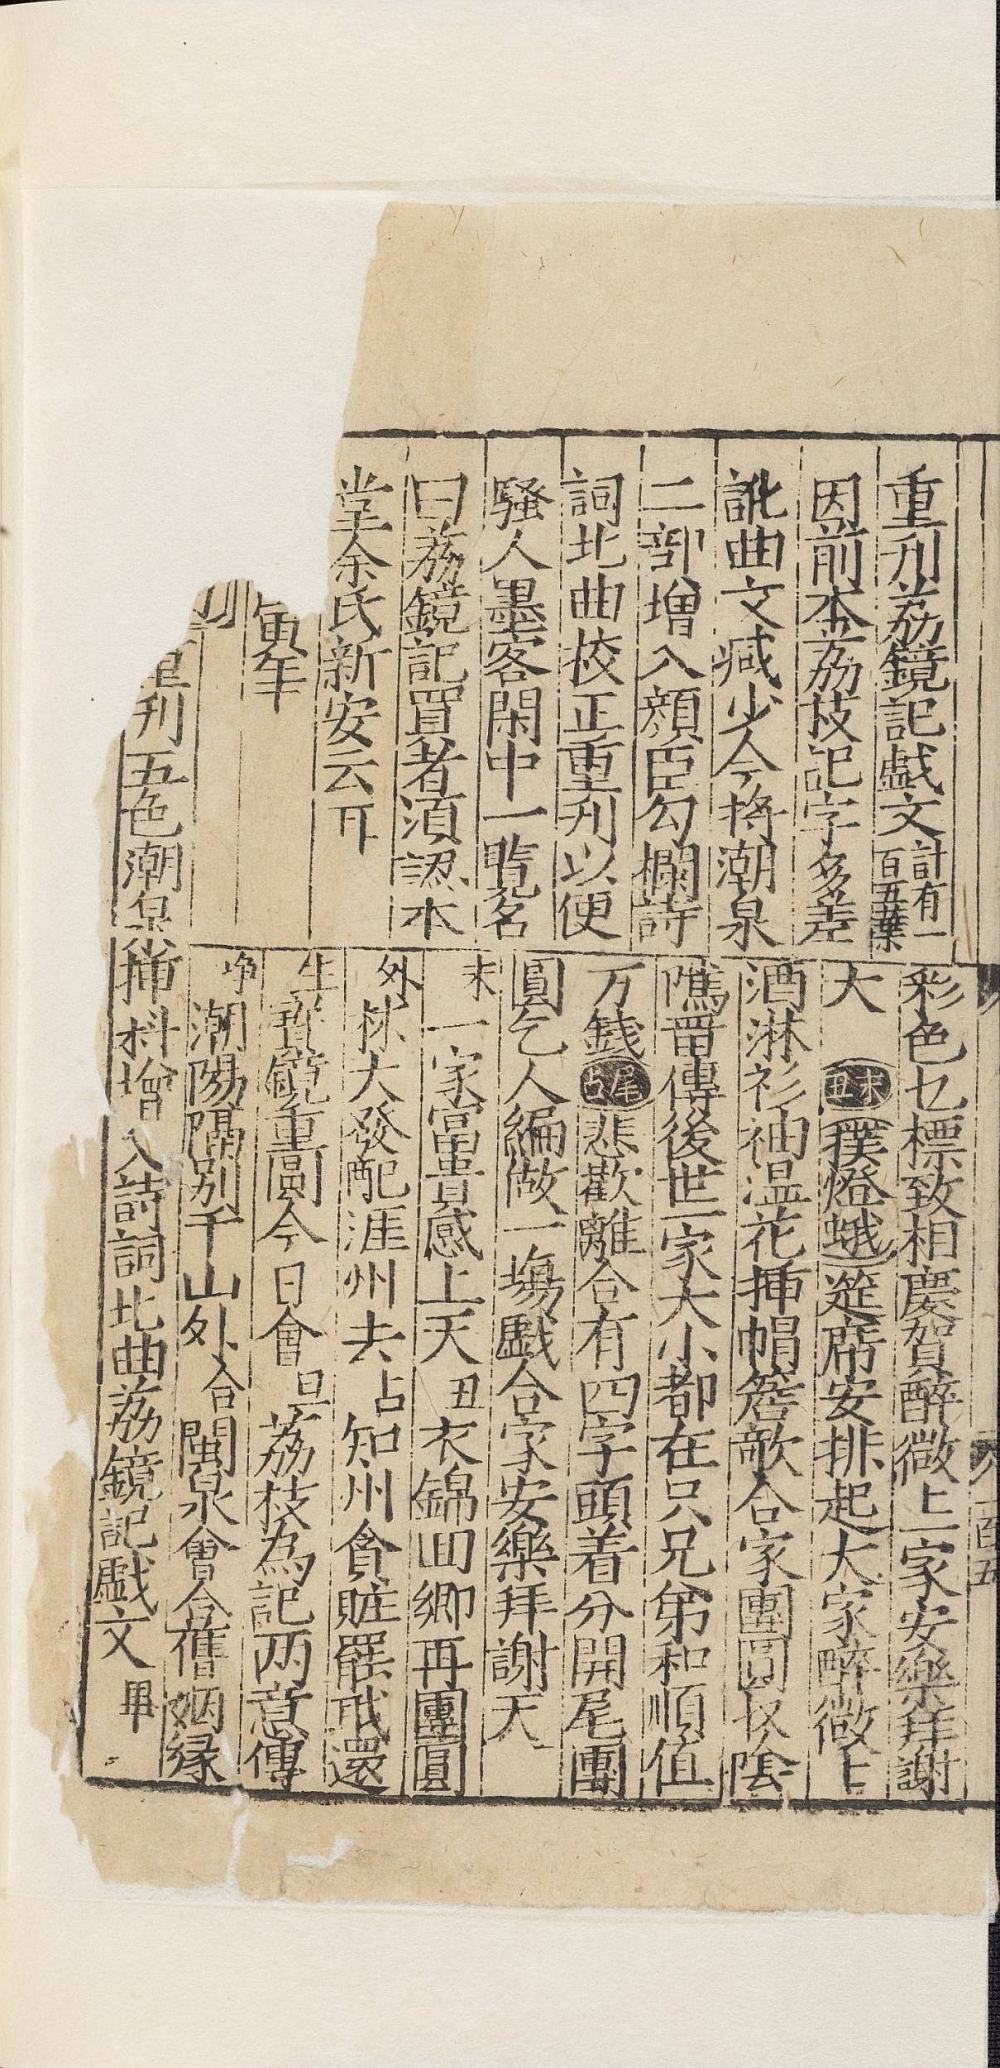 重刊荔鏡記戲文計有一百五葉
因前本荔枝記字多差
訛曲文減少今將潮泉
二部增入顏臣勾欄詩
詞北曲校正重刊以便
騷人墨客閑中一覽名
曰荔鏡記買者須認本
堂余氏新安云耳
寅年
重刊五色潮泉
彩色乜標致相慶賀醉微上一家安樂拜謝
大
末丑 撲燈蛾 筵席安排起大家醉微上
酒淋衫袖温花插帽簷敧合家團圓
傳後世一家大小都在只兄弟和順值
万錢 尾占 悲歡離合有四字頭着分開尾團
圓乞人編做一塲戲合家安樂拜謝天
末一家富貴感上天丑衣錦回鄉再團圓
外林大發配涯州去占知州貪賍罷戒還
生寳鏡重圓今日會旦荔枝為記兩意傳
净潮陽隔別千山外合閩泉會合舊姻縁
插科增入詩詞北曲荔鏡記戲文畢